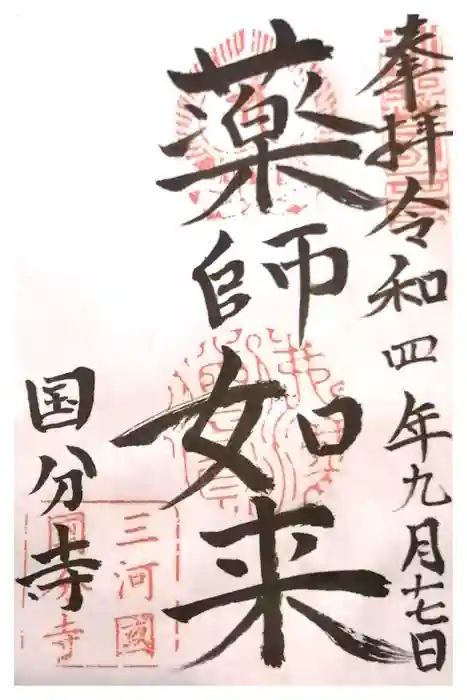 奉拝令和四年九月十七日
薬師如来
国分寺
三河國
国分寺